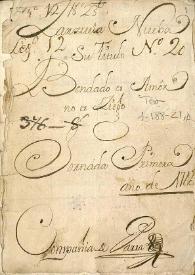 Zarzuela Nueba
Leg.º 12 Su Titulo Nº 2º
Bendado es Amor
no es Ziego
Tea
1-188-21,a
376-8
Jornada Primera
año de
Compania de Parra